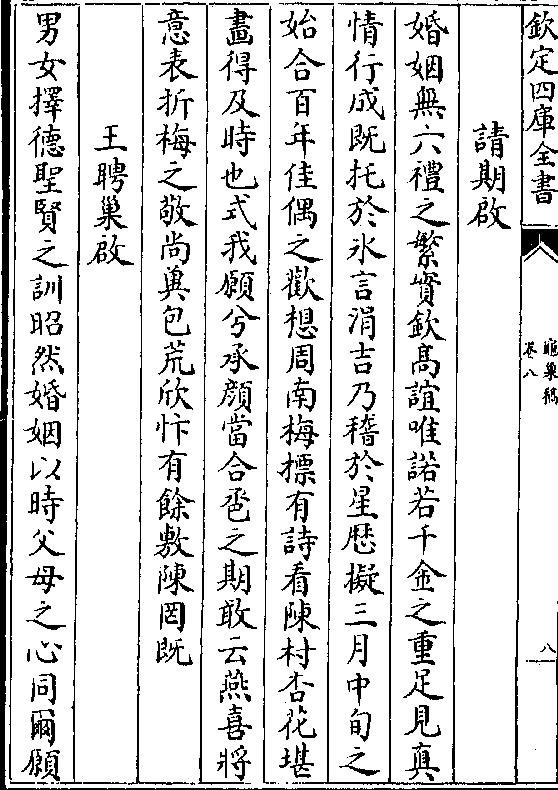 欽定四庫全書
龜巢稿
卷八
八
請期啟
婚姻無六禮之繁實欽髙誼唯諾若千金之重足見真
情行成既托於氷言涓吉乃稽於星厯擬三月中旬之
始合百年佳偶之歡想周南梅摽有詩看陳村杏花堪
畫得及時也式我願兮承顔當合卺之期敢云燕喜將
意表折梅之敬尚兾包荒欣忭有餘敷陳罔既
王聘巢啟
男女擇德聖賢之訓昭然婚姻以時父母之心同爾願